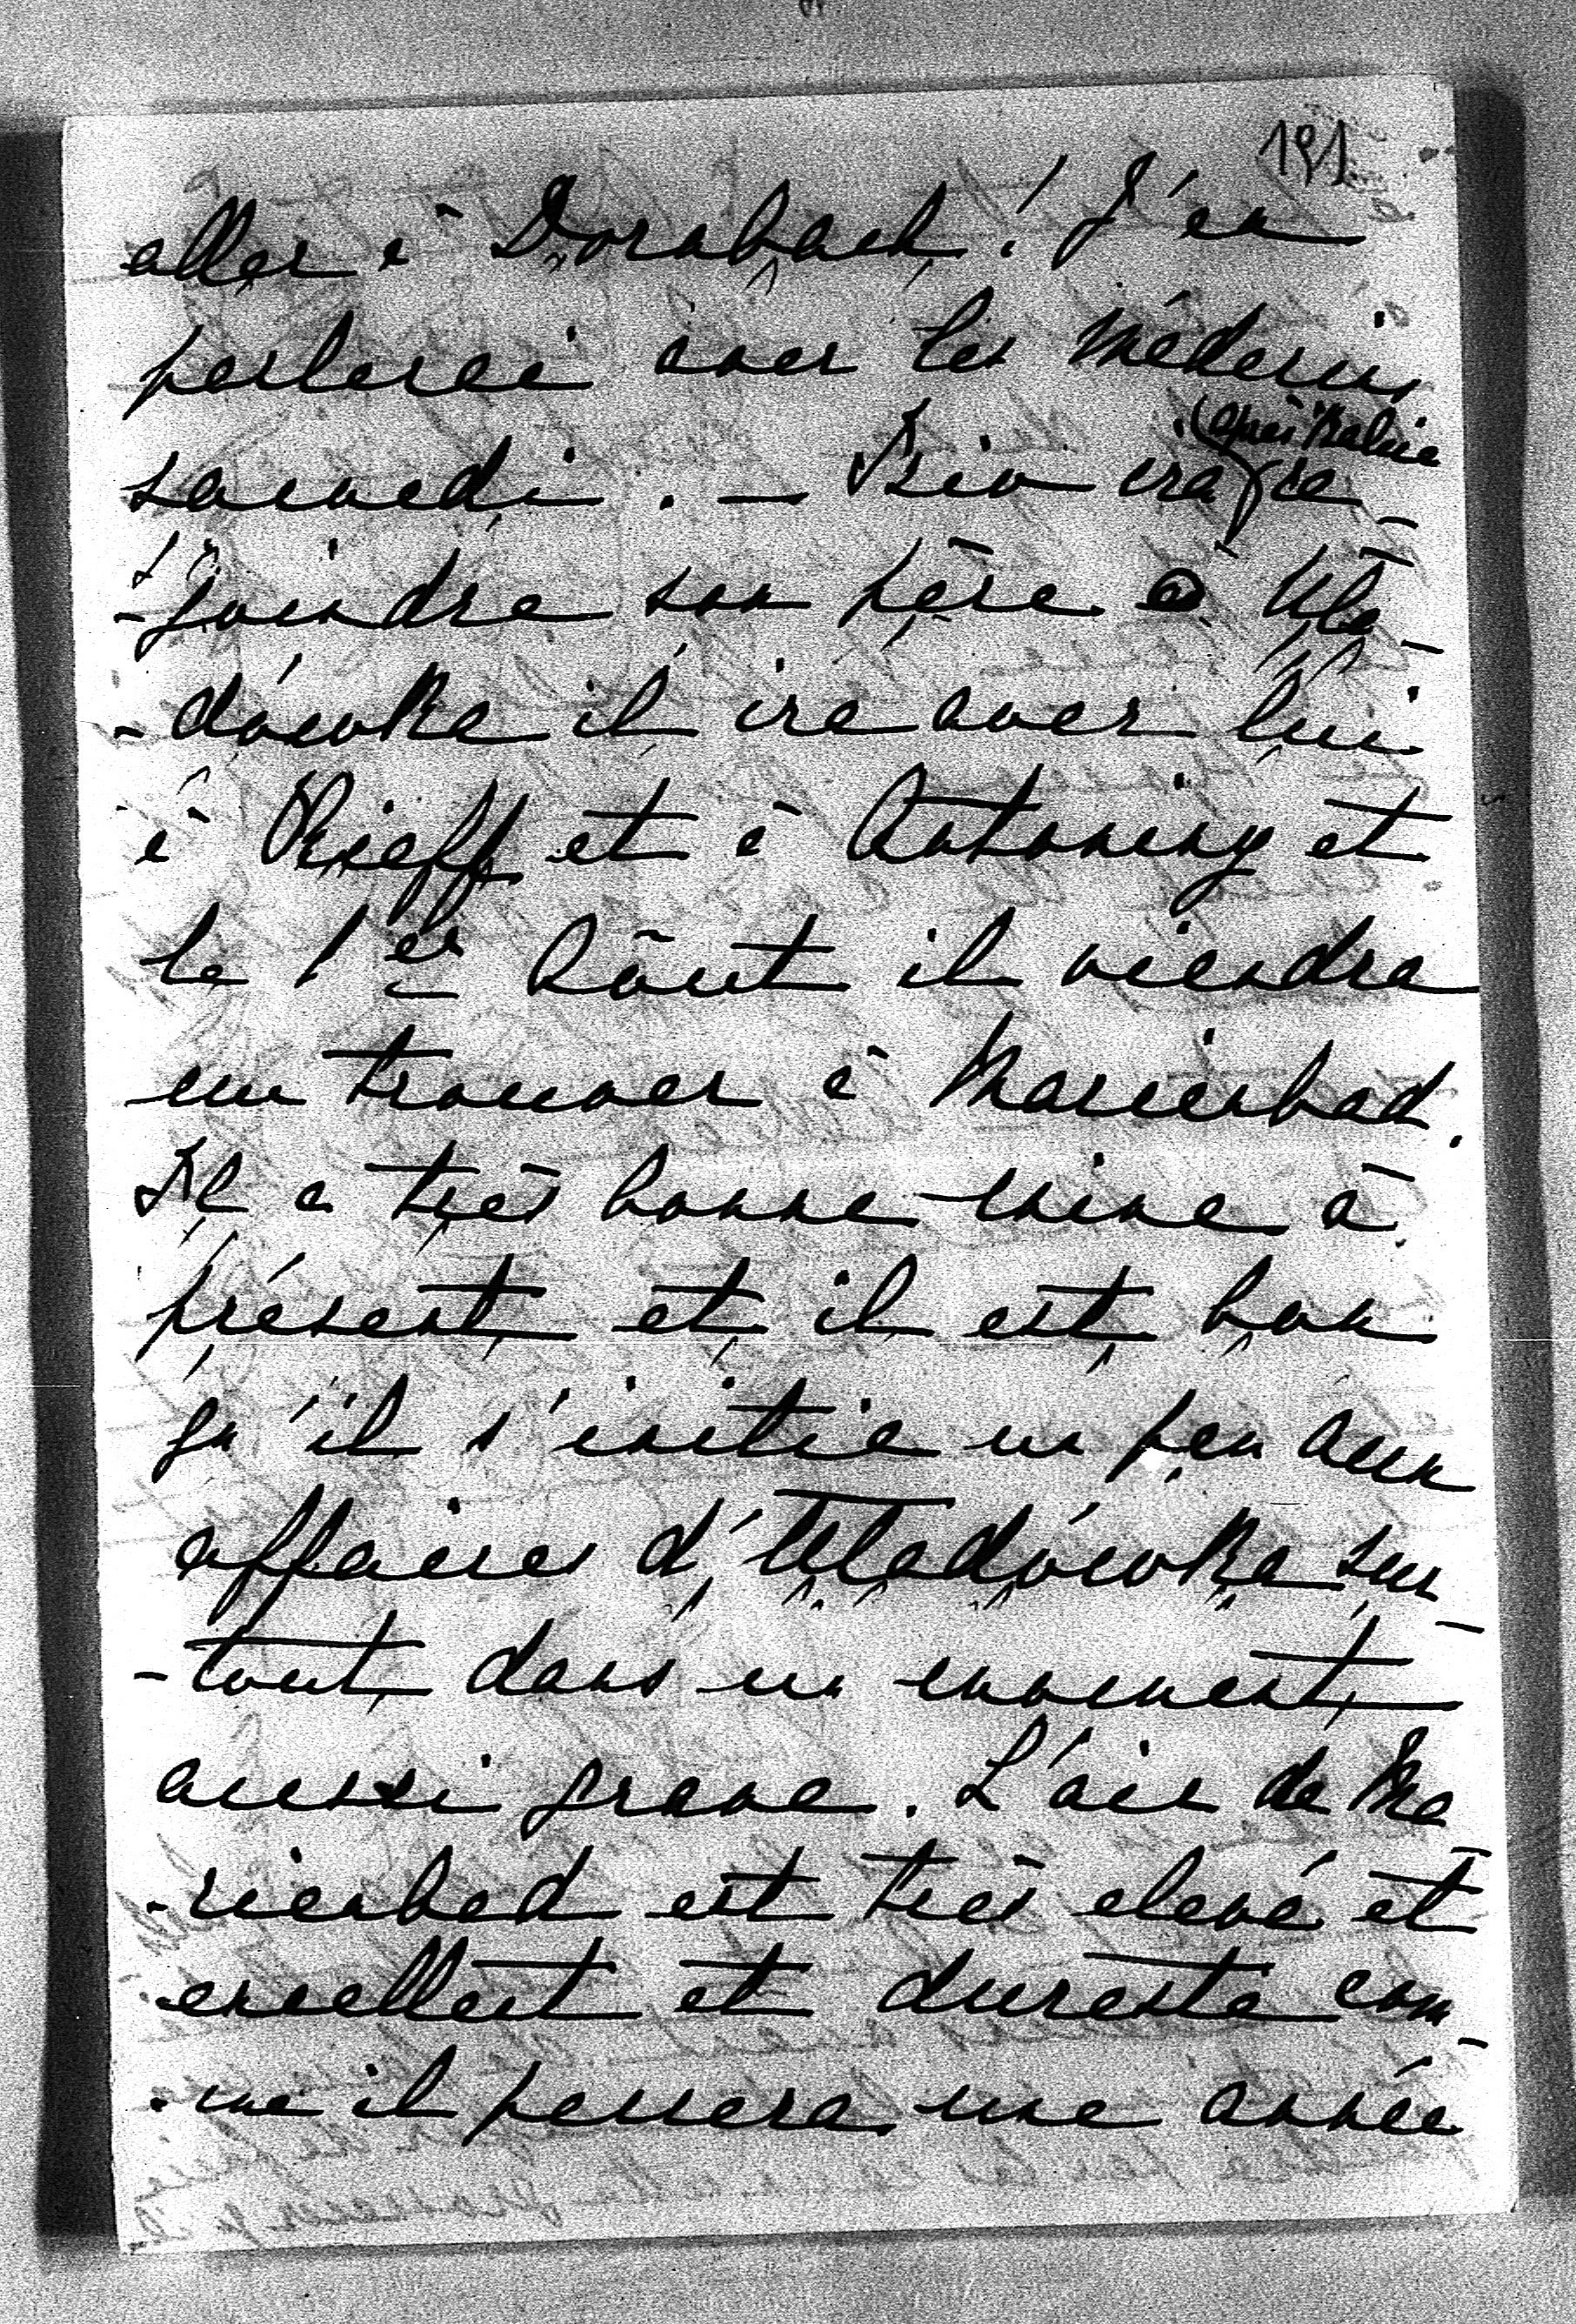 191
aller à Dornbach! J'en
parlerai avec les médecins
samedi. — ira (après Kalnie) re-
-joindre son père à Uła-
-dówka il ira avec lui
à Kieff et à Antoniny et
le 1er Août il viendra
me trouver à Marienbad.
Il a très bonne mine à
présent et il est bon
qu'il s'initie un peu aux
affaires d'Uładówka sur-
-tout dans un moment
aussi grave. L'air de Ma-
-rienbad est très elevé et
excellent et dureste com-
-me il passera une année